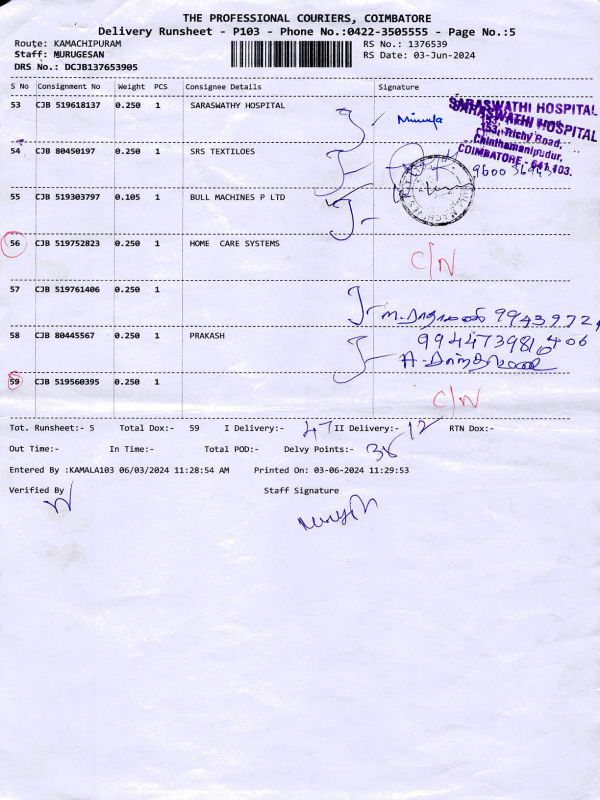 THE PROFESSIONAL COURIERS, COIMBATORE
Delivery Runsheet - P103 - Phone No.:0422-3505555 - Page No.:5
Route: KAMACHIPURAM RS No.: 1376539
Staff: MURUGESAN RS Date: 03-Jun-2024
DRS No.: DCJB137653905
S No Consignment No Weight PCS Consignee Details Signature
53 CJB 519618137 0.250 1 SARASWATHY HOSPITAL
SARASWATHI HOSPITAL
SARASWATHI HOSPITAL
153, Richy Road,
Chinthamanipudur,
COIMBATORE - 641 103.
54 CJB 80450197 0.250 1 SRS TEXTILOES
55 CJB 519303797 0.105 1 BULL MACHINES P LTD
56 CJB 519752823 0.250 1 HOME CARE SYSTEMS C/N
57 CJB 519761406 0.250 1
58 CJB 80445567 0.250 1 PRAKASH
59 CJB 519560395 0.250 1 C/N
Tot. Runsheet:- 5 Total Dox:- 59 I Delivery:- 47 II Delivery:- 12 RTN Dox:-
Out Time:- In Time:- Total POD:- Delvy Points:- 38
Entered By :KAMALA103 06/03/2024 11:28:54 AM Printed On: 03-06-2024 11:29:53
Verified By Staff Signature